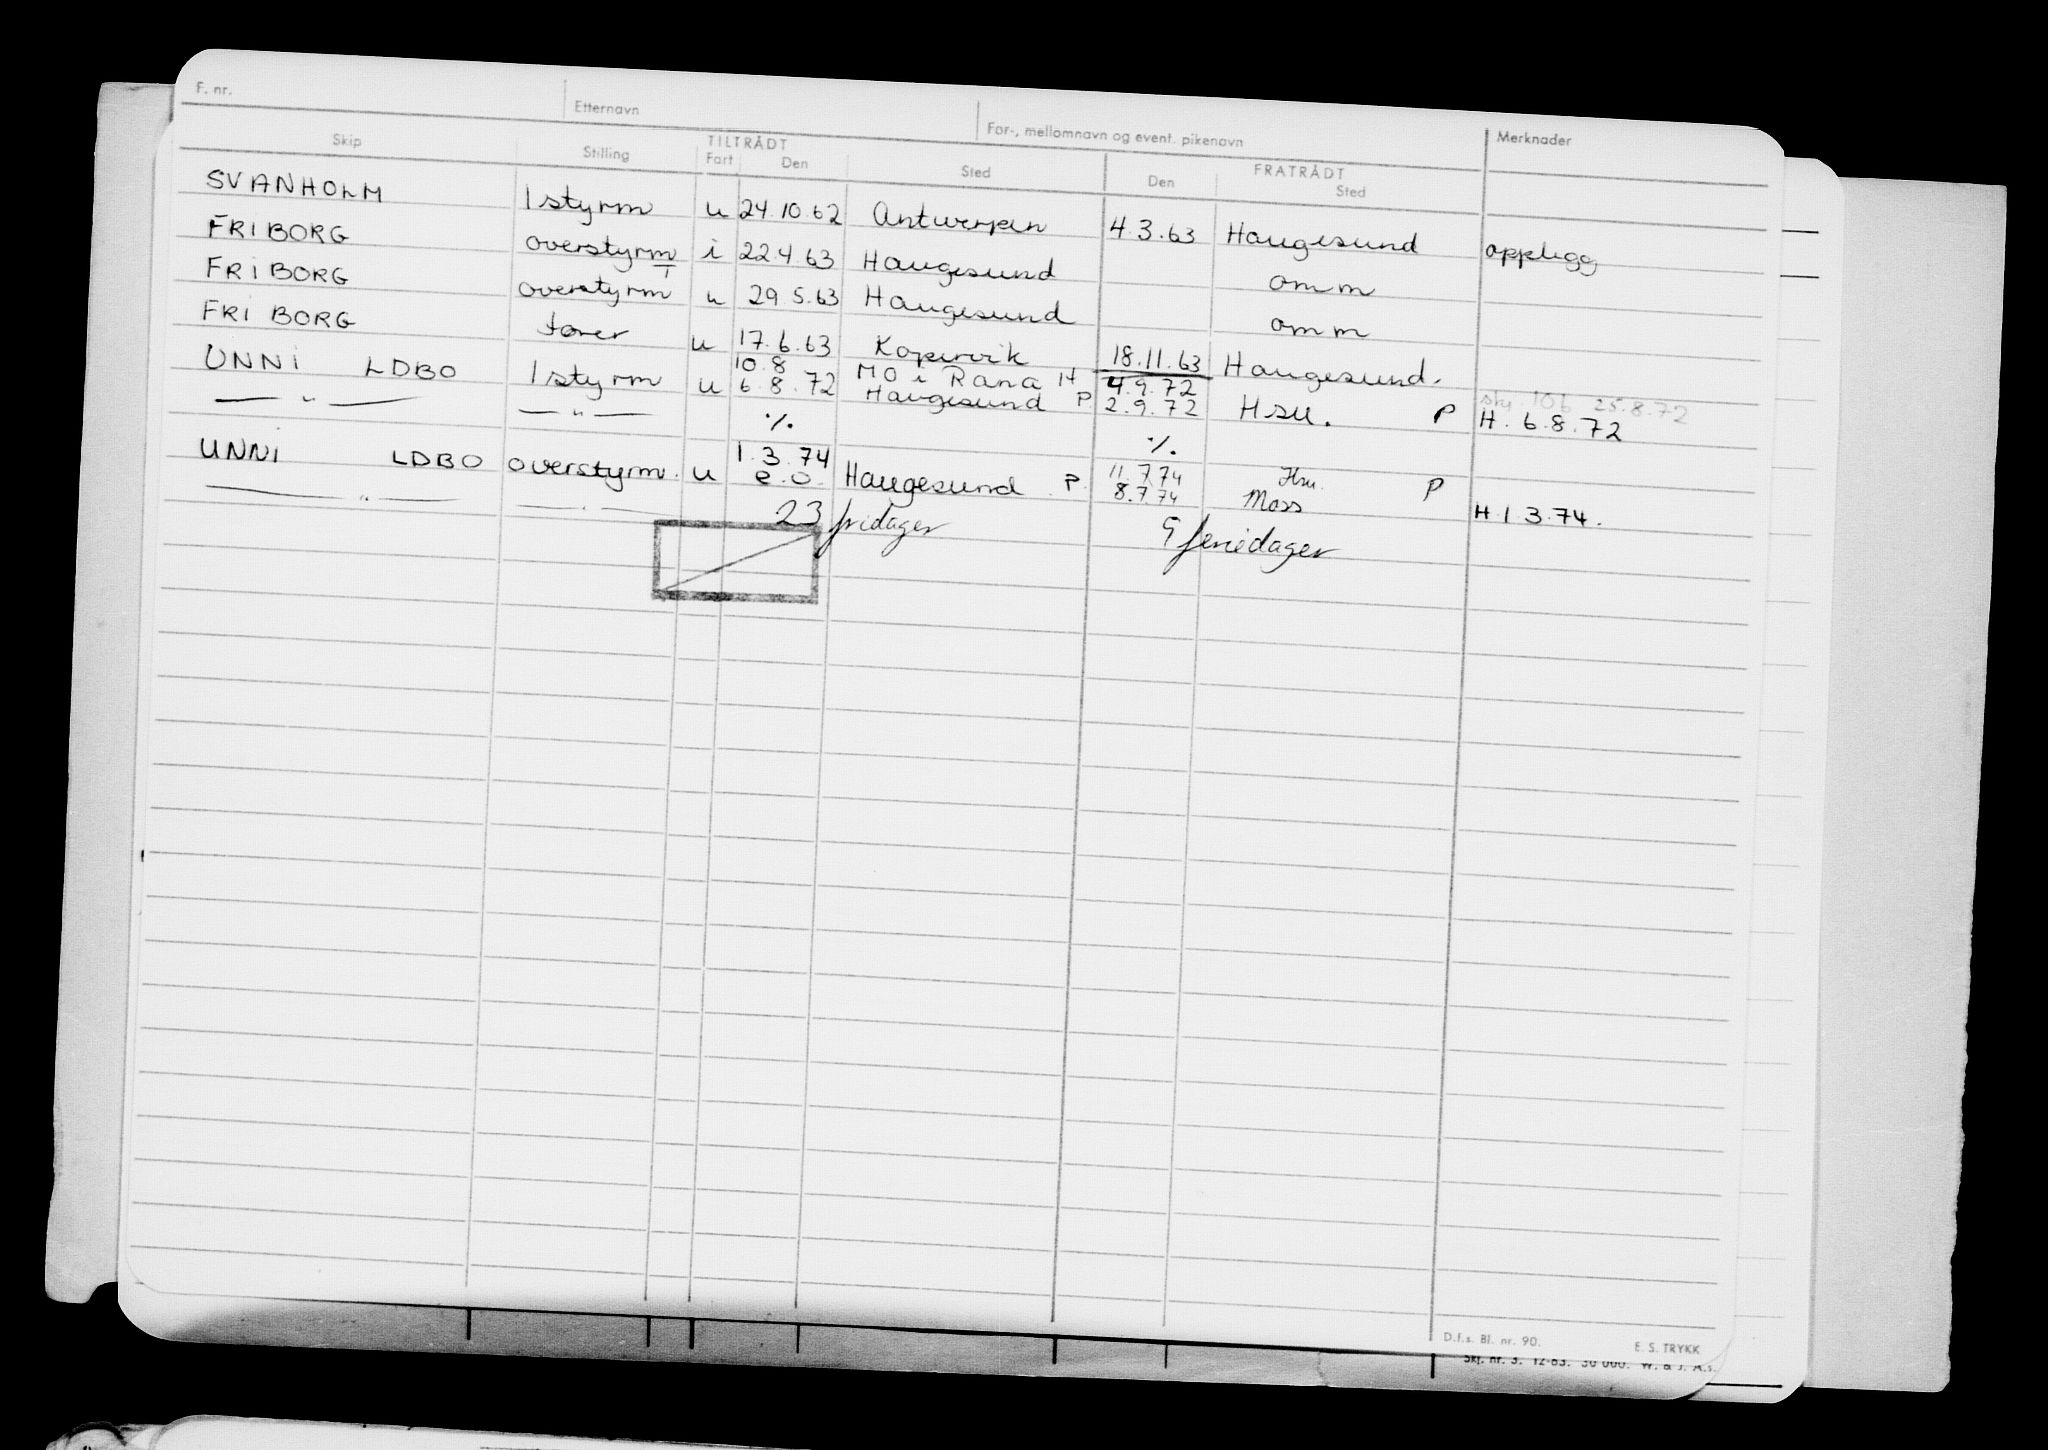 F. nr. Etternavn For-, mellomnavn og event. pikenavn Merknader
Skip Stilling TILTRÅDT Fart Den Sted FRATRÅDT Den Sted
SVANHOLM 1 styrm u 24.10.62 Antwerpen 4.3.63 Haugesund opplegg
FRIBORG overstyrm i 22.4.63 Haugesund omm
FRIBORG overstyrm u 29.5.63 Haugesund omm
FRI BORG fører u 17.6.63 Kopervik 18.11.63 Haugesund.
10.8 MO i Rana H 4.9.72 25.8.72
UNNI LDBO 1 styrm u 6.8.72 Haugesund P. 2.9.72 Hsu. P H. 6.8.72
— " — — " — ./. ./.
1.3.74 11.7.74 Hsu.
UNNI LDBO overstyrm. u e.o. Haugesund P. 8.7.74 Moss P H.1.3.74.
— " — — " — 23 fridager 9 feriedager
D.f.s. Bl. nr. 90. E. S. TRYKK
Skj. nr. 3. 12-63. 30 000. W. & J. A.s.